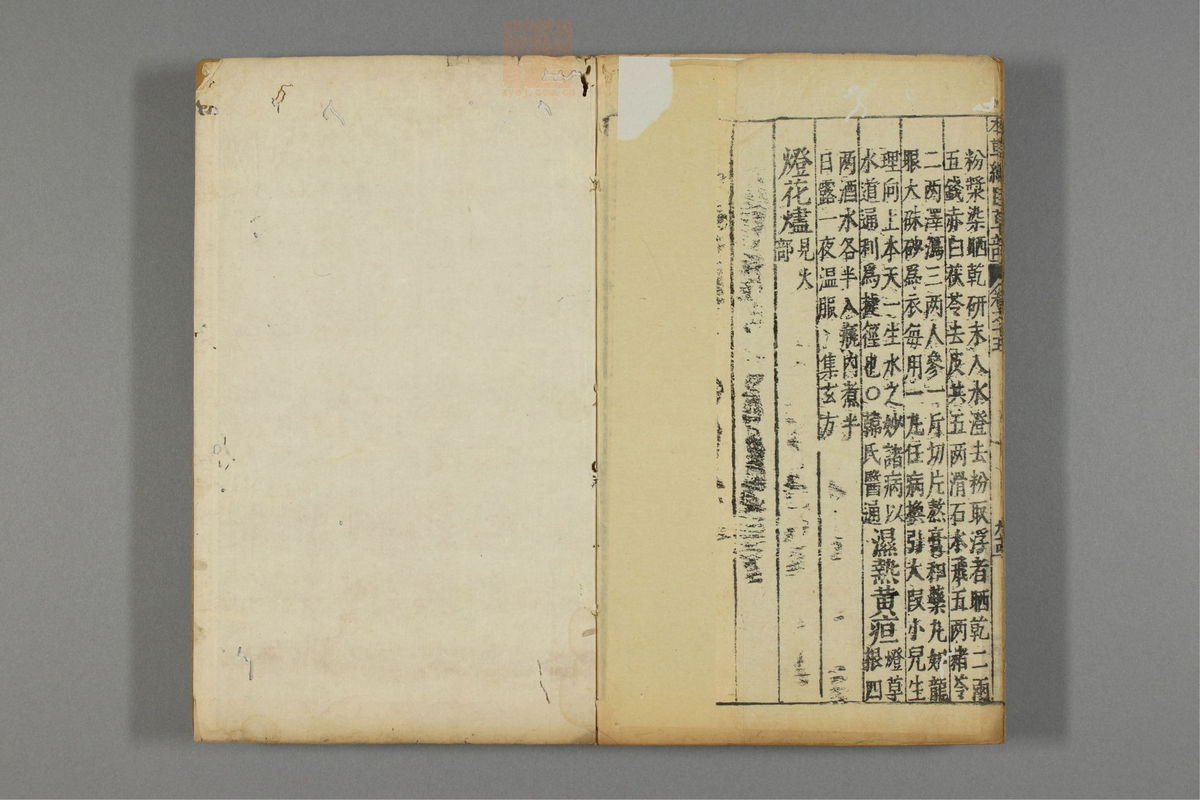 本草綱目草部 卷之十五 九十四
粉漿染晒乾研末入水澄去粉取浮者晒乾二兩
五錢赤白茯苓去皮共五两滑石水飛五两猪苓
二两澤瀉三两人參一斤切片熬膏和藥丸如龍
眼大硃砂爲衣每用一丸任病換引大叚小兒生
理向上本天一生水之妙諸病以
水道通利爲捷徑也○韓氏醫通
濕熱黃疸
燈草
根四
两酒水各半入瓶內煮半
日露一夜温服集玄方
燈花燼
見火
部